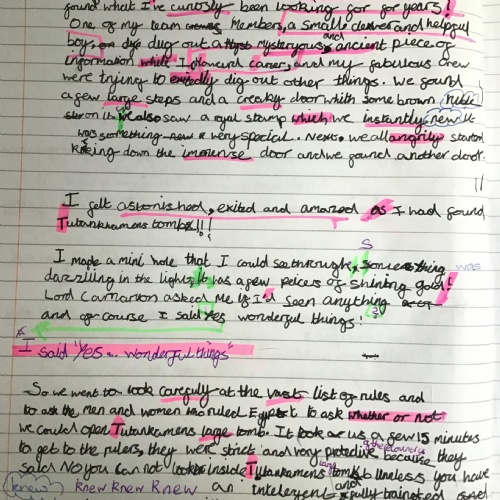 found what I've curiosly been looking for for years!
One of my team members, a small clever and helpful
boy, dug out a mysteryous and ancient piece of
information while I flowerd career, and my fabulous crew
were trying to dig out other things. We found
a few large steps and a creaky door whith some brown
on it. We also saw a royal stamp which we instantly new it
was something a very special. Next, we all angrily started
kicking down the immense door and we found another door.
I felt astonished, exited and amazed as I had found
Tutankramens tomb!!!
S
I made a mini hole that I could see through, something was
dazzling in the light, It was a few peices of shining gold!
Lord Carnarvon asked me if I'd seen anything
and of course I said Yes wonderful things!
I said "Yes... wonderful things"
So we went to look carefuly at the vast list of rules and
to ask the men and women who ruled Egypt to ask whether or not
we could open Tutankamens large tomb. It took us a few 15 minutes
to get to the rulers, they were strict and very protective because they
said No you can not look inside Tutankamens tomb unless you have
knew knew knew knew an intelegent and fully trained